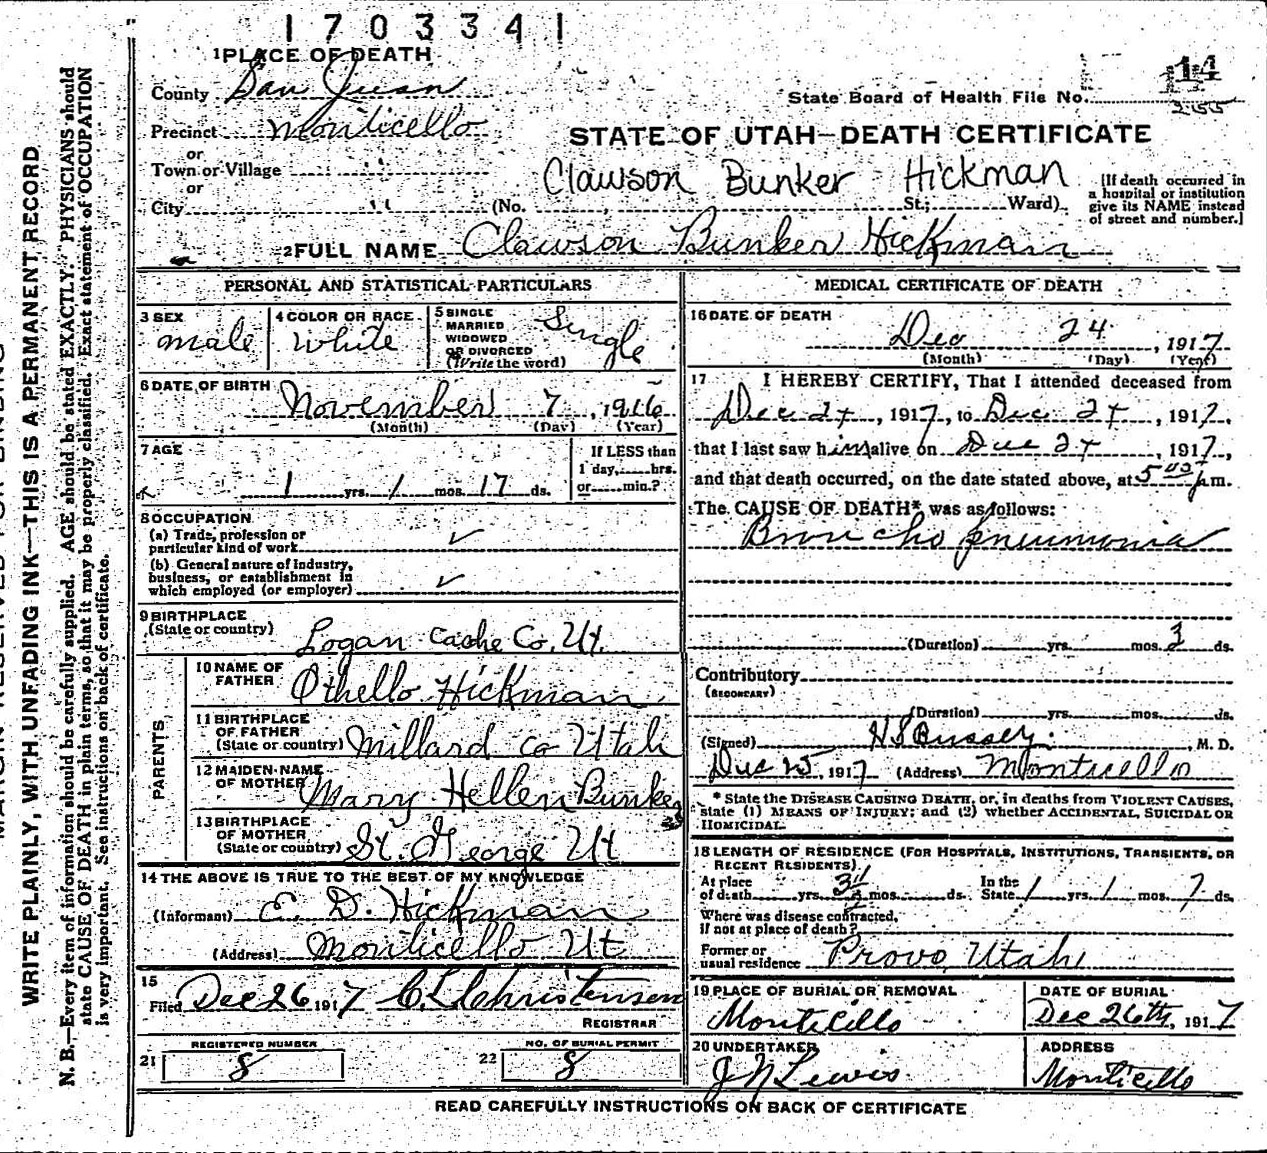 1703341
1 PLACE OF DEATH
County San Juan
State Board of Health File No. 14
255
Precinct Monticello
STATE OF UTAH—DEATH CERTIFICATE
or
Town or Village " "
or
Clawson Bunker Hickman
City " (No. St.; Ward)
[If death occurred in a hospital or institution give its NAME instead of street and number.]
2 FULL NAME Clawson Bunker Hickman
PERSONAL AND STATISTICAL PARTICULARS
3 SEX
male
4 COLOR OR RACE
White
5 SINGLE
MARRIED
WIDOWED
OR DIVORCED
(Write the word)
Single
6 DATE OF BIRTH
November 7, 1916
(Month) (Day) (Year)
7 AGE
1 yrs. 1 mos. 17 ds.
If LESS than
1 day, hrs.
or min.?
8 OCCUPATION
(a) Trade, profession or
particular kind of work ✓
(b) General nature of industry,
business, or establishment in
which employed (or employer) ✓
9 BIRTHPLACE
(State or country)
Logan Cache Co. Ut.
PARENTS
10 NAME OF
FATHER
Othello Hickman
11 BIRTHPLACE
OF FATHER
(State or country) Millard Co Utah
12 MAIDEN NAME
OF MOTHER Mary Hellen Bunker
13 BIRTHPLACE
OF MOTHER
(State or country) St. George Ut
14 THE ABOVE IS TRUE TO THE BEST OF MY KNOWLEDGE
(Informant) E. D. Hickman
(Address) Monticello Ut
15
Filed Dec 26 1917 C. L. Christensen
REGISTRAR
REGISTERED NUMBER
21 8
NO. OF BURIAL PERMIT
22 8
MEDICAL CERTIFICATE OF DEATH
16 DATE OF DEATH
Dec 24, 1917
(Month) (Day) (Year)
17 I HEREBY CERTIFY, That I attended deceased from
Dec 24, 1917, to Dec 24, 1917,
that I last saw him alive on Dec 24, 1917,
and that death occurred, on the date stated above, at 5 p.m.
The CAUSE OF DEATH* was as follows:
Broncho pneumonia
(Duration) yrs. mos. 3 ds.
Contributory
(SECONDARY)
(Duration) yrs. mos. ds.
(Signed) , M. D.
Dec 25, 1917 (Address) Monticello
* State the DISEASE CAUSING DEATH, or, in deaths from VIOLENT CAUSES,
state (1) MEANS OF INJURY; and (2) whether ACCIDENTAL, SUICIDAL OR
HOMICIDAL.
18 LENGTH OF RESIDENCE (FOR HOSPITALS, INSTITUTIONS, TRANSIENTS, OR
RECENT RESIDENTS)
At place
of death yrs. mos. ds. In the
State 1 yrs. 1 mos. 7 ds.
Where was disease contracted,
if not at place of death?
Former or
usual residence Provo, Utah
19 PLACE OF BURIAL OR REMOVAL
Monticello
DATE OF BURIAL
Dec 26th, 1917
20 UNDERTAKER
J N Lewis
ADDRESS
Monticello
READ CAREFULLY INSTRUCTIONS ON BACK OF CERTIFICATE
WRITE PLAINLY, WITH UNFADING INK—THIS IS A PERMANENT RECORD
N. B.—Every item of information should be carefully supplied. AGE should be stated EXACTLY. PHYSICIANS should
state CAUSE OF DEATH in plain terms, so that it may be properly classified. Exact statement of OCCUPATION
is very important. See instructions on back of certificate.